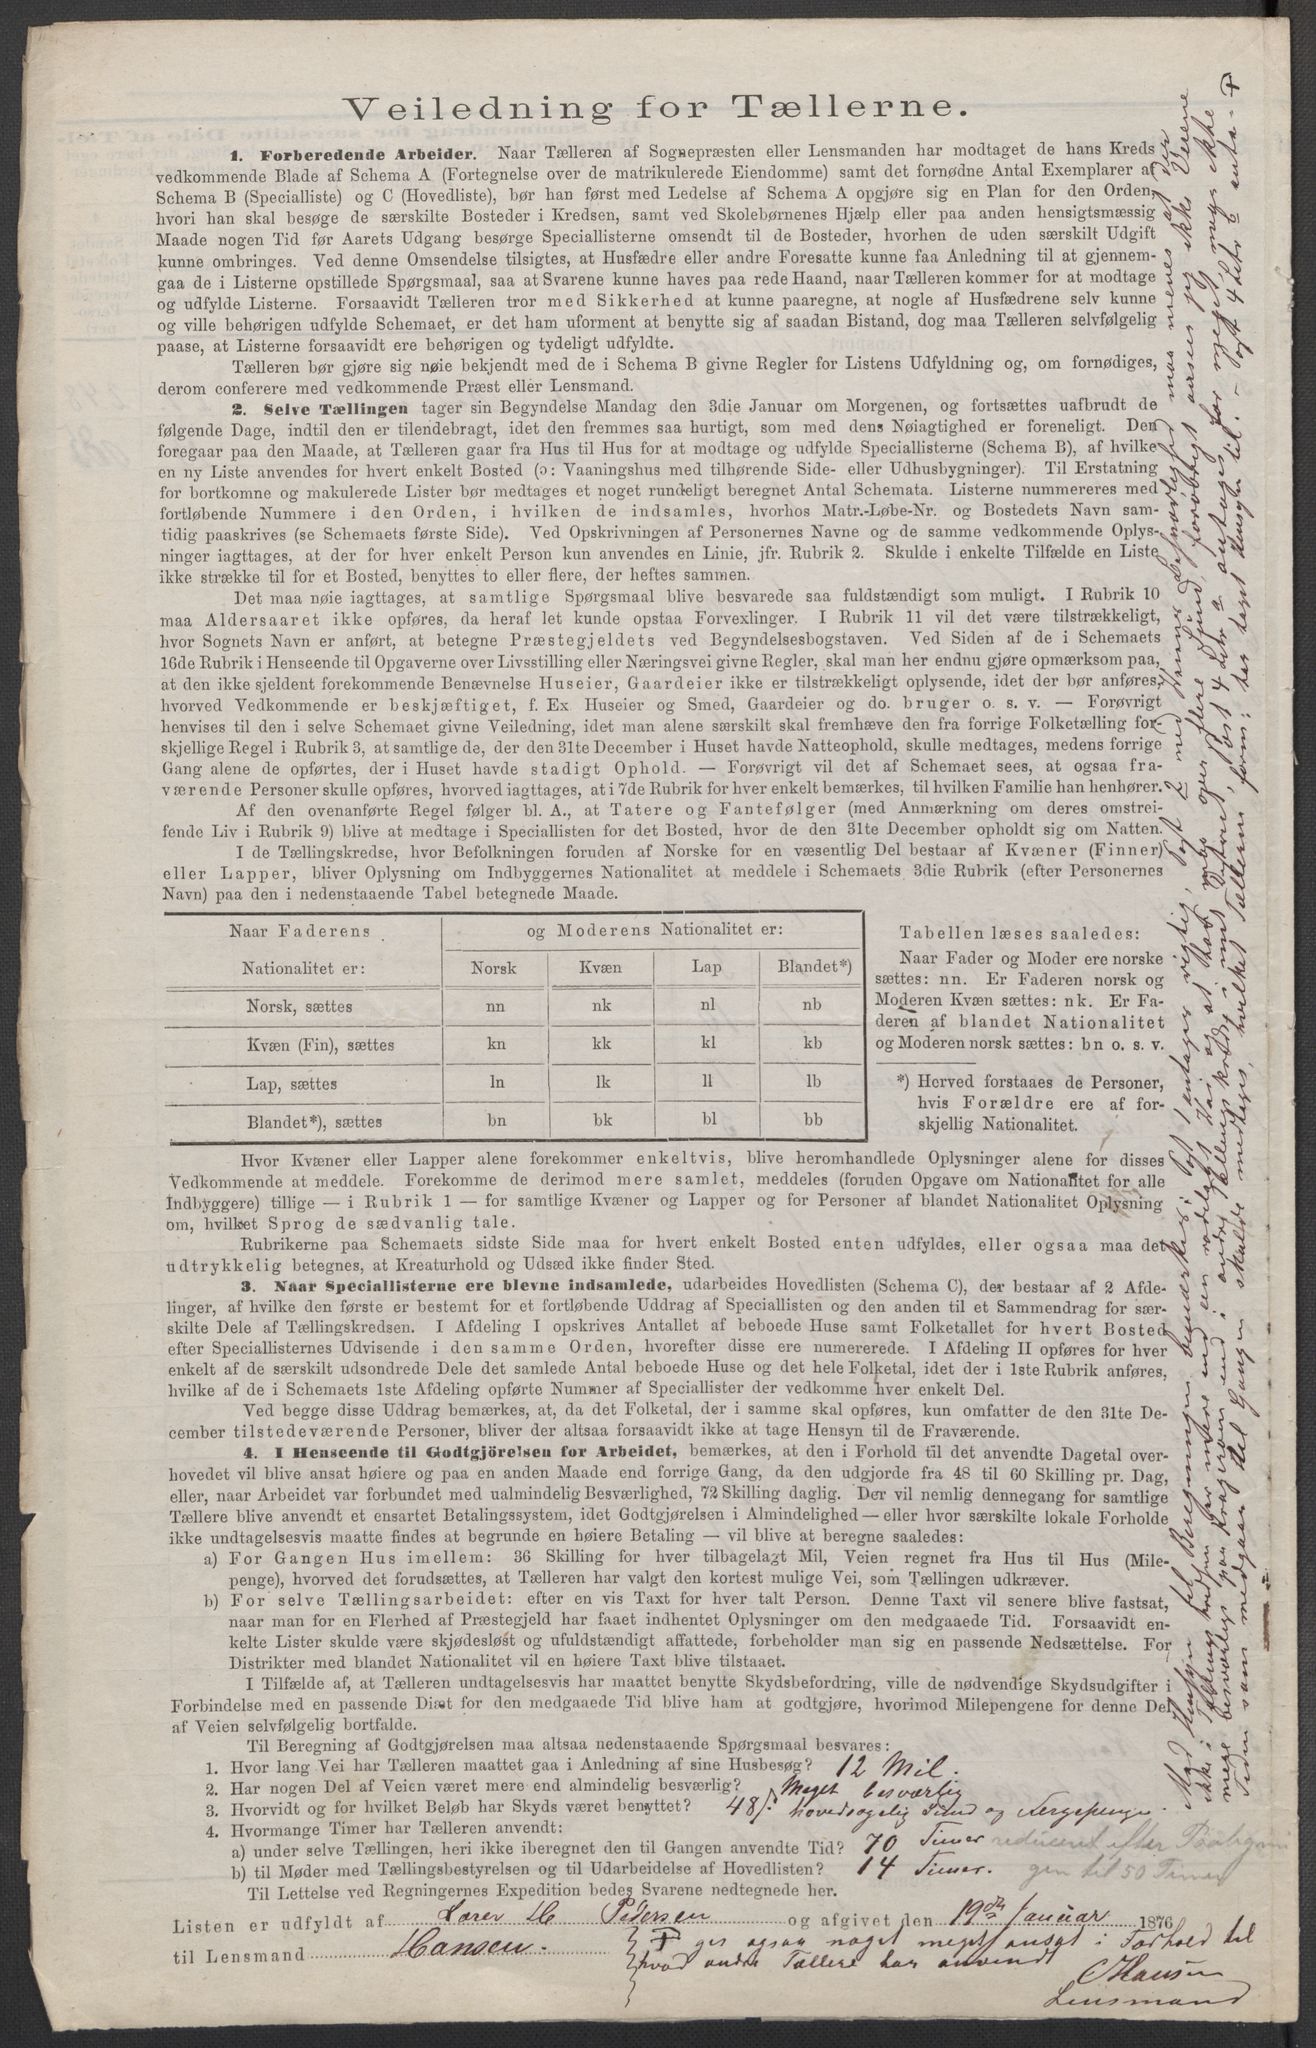 Veiledning for Tællerne.
1. Forberedende Arbeider. Naar Tælleren af Sognepræsten eller Lensmanden har modtaget de hans Kreds
vedkommende Blade af Schema A (Fortegnelse over de matrikulerede Eiendomme) samt det fornødne Antal Exemplarer af
Schema B (Specialliste) og C (Hovedliste), bør han først med Ledelse af Schema A opgjøre sig en Plan for den Orden,
hvori han skal besøge de særskilte Bosteder i Kredsen, samt ved Skolebørnenes Hjælp eller paa anden hensigtsmæssig
Maade nogen Tid før Aarets Udgang besørge Speciallisterne omsendt til de Bosteder, hvorhen de uden særskilt Udgift
kunne ombringes. Ved denne Omsendelse tilsigtes, at Husfædre eller andre Foresatte kunne faa Anledning til at gjennem-
gaa de i Listerne opstillede Spørgsmaal, saa at Svarene kunne haves paa rede Haand, naar Tælleren kommer for at modtage
og udfylde Listerne. Forsaavidt Tælleren tror med Sikkerhed at kunne paaregne, at nogle af Husfædrene selv kunne
og ville behørigen udfylde Schemaet, er det ham uforment at benytte sig af saadan Bistand, dog maa Tælleren selvfølgelig
paase, at Listerne forsaavidt ere behørigen og tydeligt udfyldte.
Tælleren bør gjøre sig nøie bekjendt med de i Schema B givne Regler for Listens Udfyldning og, om fornødiges,
derom conferere med vedkommende Præst eller Lensmand.
2. Selve Tællingen tager sin Begyndelse Mandag den 3die Januar om Morgenen, og fortsættes uafbrudt de
følgende Dage, indtil den er tilendebragt, idet den fremmes saa hurtigt, som med dens Nøiagtighed er foreneligt. Den
foregaar paa den Maade, at Tælleren gaar fra Hus til Hus for at modtage og udfylde Speciallisterne (Schema B), af hvilke
en ny Liste anvendes for hvert enkelt Bosted (ɔ: Vaaningshus med tilhørende Side- eller Udhusbygninger). Til Erstatning
for bortkomne og makulerede Lister bør medtages et noget rundeligt beregnet Antal Schemata. Listerne nummereres med
fortløbende Nummere i den Orden, i hvilken de indsamles, hvorhos Matr.-Løbe-Nr. og Bostedets Navn sam-
tidig paaskrives (se Schemaets første Side). Ved Opskrivningen af Personernes Navne og de samme vedkommende Oplys-
ninger iagttages, at der for hver enkelt Person kun anvendes en Linie, jfr. Rubrik 2. Skulde i enkelte Tilfælde en Liste
ikke strække til for et Bosted, benyttes to eller flere, der heftes sammen.
Det maa nøie iagttages, at samtlige Spørgsmaal blive besvarede saa fuldstændigt som muligt. I Rubrik 10
maa Aldersaaret ikke opføres, da heraf let kunde opstaa Forvexlinger. I Rubrik 11 vil det være tilstrækkeligt,
hvor Sognets Navn er anført, at betegne Præstegjeldets ved Begyndelsesbogstaven. Ved Siden af de i Schemaets
16de Rubrik i Henseende til Opgaverne over Livsstilling eller Næringsvei givne Regler, skal man her endnu gjøre opmærksom paa,
at den ikke sjeldent forekommende Benævnelse Huseier, Gaardeier ikke er tilstrækkeligt oplysende, idet der bør anføres,
hvorved Vedkommende er beskjæftiget, f. Ex. Huseier og Smed, Gaardeier og do. bruger o. s. v. — Forøvrigt
henvises til den i selve Schemaet givne Veiledning, idet man alene særskilt skal fremhæve den fra forrige Folketælling for-
skjellige Regel i Rubrik 3, at samtlige de, der den 31te December i Huset havde Natteophold, skulle medtages, medens forrige
Gang alene de opførtes, der i Huset havde stadigt Ophold. — Forøvrigt vil det af Schemaet sees, at ogsaa fra-
værende Personer skulle opføres, hvorved iagttages, at i 7de Rubrik for hver enkelt bemærkes, til hvilken Familie han henhører.
Af den ovenanførte Regel følger bl. A., at Tatere og Fantefølger (med Anmærkning om deres omstrei-
fende Liv i Rubrik 9) blive at medtage i Speciallisten for det Bosted, hvor de den 31te December opholdt sig om Natten.
I de Tællingskredse, hvor Befolkningen foruden af Norske for en væsentlig Del bestaar af Kvæner (Finner)
eller Lapper, bliver Oplysning om Indbyggernes Nationalitet at meddele i Schemaets 3die Rubrik (efter Personernes
Navn) paa den i nedenstaaende Tabel betegnede Maade.
Naar Faderens og Moderens Nationalitet er:
Nationalitet er: Norsk Kvæn Lap Blandet*)
Norsk, sættes nn nk nl nb
Kvæn (Fin), sættes kn kk kl kb
Lap, sættes ln lk ll lb
Blandet*), sættes bn bk bl bb
Tabellen læses saaledes:
Naar Fader og Moder ere norske
sættes: nn. Er Faderen norsk og
Moderen Kvæn sættes: nk. Er Fa-
deren af blandet Nationalitet
og Moderen norsk sættes: bn o. s. v.
*) Herved forstaaes de Personer,
hvis Forældre ere af for-
skjellig Nationalitet.
Hvor Kvæner eller Lapper alene forekommer enkeltvis, blive heromhandlede Oplysninger alene for disses
Vedkommende at meddele. Forekomme de derimod mere samlet, meddeles (foruden Opgave om Nationalitet for alle
Indbyggere) tillige — i Rubrik 1 — for samtlige Kvæner og Lapper og for Personer af blandet Nationalitet Oplysning
om, hvilket Sprog de sædvanlig tale.
Rubrikerne paa Schemaets sidste Side maa for hvert enkelt Bosted enten udfyldes, eller ogsaa maa det
udtrykkelig betegnes, at Kreaturhold og Udsæd ikke finder Sted.
3. Naar Speciallisterne ere blevne indsamlede, udarbeides Hovedlisten (Schema C), der bestaar af 2 Afde-
linger, af hvilke den første er bestemt for et fortløbende Uddrag af Speciallisten og den anden til et Sammendrag for sær-
skilte Dele af Tællingskredsen. I Afdeling I opskrives Antallet af beboede Huse samt Folketallet for hvert Bosted
efter Speciallisternes Udvisende i den samme Orden, hvorefter disse ere numererede. I Afdeling II opføres for hver
enkelt af de særskilt udsondrede Dele det samlede Antal beboede Huse og det hele Folketal, idet der i 1ste Rubrik anføres,
hvilke af de i Schemaets 1ste Afdeling opførte Nummer af Speciallister der vedkomme hver enkelt Del.
Ved begge disse Uddrag bemærkes, at, da det Folketal, der i samme skal opføres, kun omfatter de den 31te De-
cember tilstedeværende Personer, bliver der altsaa forsaavidt ikke at tage Hensyn til de Fraværende.
4. I Henseende til Godtgjörelsen for Arbeidet, bemærkes, at den i Forhold til det anvendte Dagetal over-
hovedet vil blive ansat høiere og paa en anden Maade end forrige Gang, da den udgjorde fra 48 til 60 Skilling pr. Dag,
eller, naar Arbeidet var forbundet med ualmindelig Besværlighed, 72 Skilling daglig. Der vil nemlig dennegang for samtlige
Tællere blive anvendt et ensartet Betalingssystem, idet Godtgjörelsen i Almindelighed — eller hvor særskilte lokale Forholde
ikke undtagelsesvis maatte findes at begrunde en høiere Betaling — vil blive at beregne saaledes:
a) For Gangen Hus imellem: 36 Skilling for hver tilbagelagt Mil, Veien regnet fra Hus til Hus (Mile-
penge), hvorved det forudsættes, at Tælleren har valgt den kortest mulige Vei, som Tællingen udkræver.
b) For selve Tællingsarbeidet: efter en vis Taxt for hver talt Person. Denne Taxt vil senere blive fastsat,
naar man for en Flerhed af Præstegjeld har faaet indhentet Oplysninger om den medgaaede Tid. Forsaavidt en-
kelte Lister skulde være skjødesløst og ufuldstændigt affattede, forbeholder man sig en passende Nedsættelse. For
Distrikter med blandet Nationalitet vil en høiere Taxt blive tilstaaet.
I Tilfælde af, at Tælleren undtagelsesvis har maattet benytte Skydsbefordring, ville de nødvendige Skydsudgifter i
Forbindelse med en passende Diæt for den medgaaede Tid blive ham at godtgjøre, hvorimod Milepengene for denne Del
af Veien selvfølgelig bortfalde.
Til Beregning af Godtgjørelsen maa altsaa nedenstaaende Spørgsmaal besvares:
1. Hvor lang Vei har Tælleren maattet gaa i Anledning af sine Husbesøg? 12 Mil.
2. Har nogen Del af Veien været mere end almindelig besværlig? Meget besværlig
3. Hvorvidt og for hvilket Beløb har Skyds været benyttet? 48 hovedsagelig Sund og Færgepenge.
4. Hvormange Timer har Tælleren anvendt:
a) under selve Tællingen, heri ikke iberegnet den til Gangen anvendte Tid? 70 Timer reduceret efter
b) til Møder med Tællingsbestyrelsen og til Udarbeidelse af Hovedlisten? 14 Timer. til 50 Timer
Til Lettelse ved Regningernes Expedition bedes Svarene nedtegnede her.
Listen er udfyldt af Lærer H Pedersen og afgivet den 19de Januar 1876
til Lensmand Hansen.
ogsaa noget meget ansat i Forhold til
hvad andre Tællere har anvendt
CHansen
Lensmand
Med Hensyn til Beregningen bemærkes: Post 1 antages rigtig, Post 2